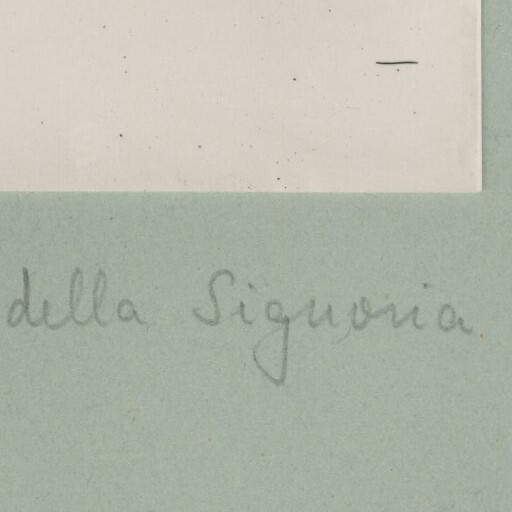 della Signoria.